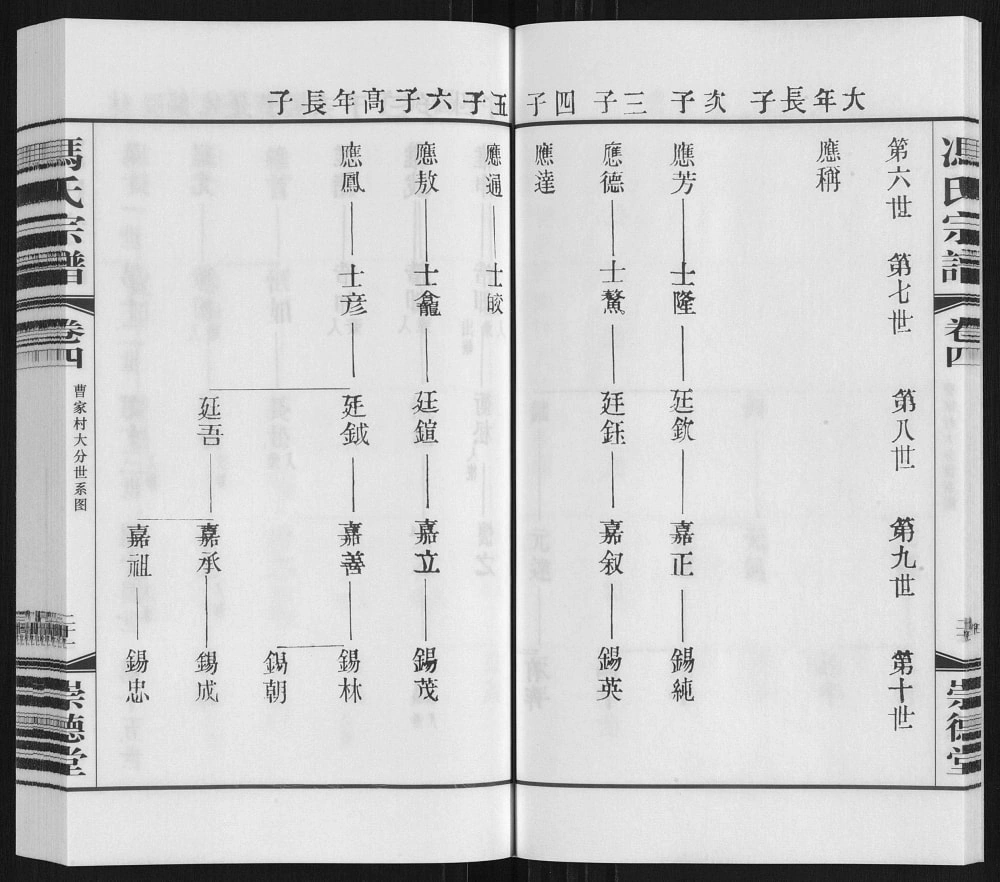 大年長子
次子
三子
四子
五子
六子
高年長子
馮氏宗譜
卷四
崇德堂
第六世
第七世
第八世
第九世
第十世
應稱
應芳
士隆
廷欽
嘉正
錫純
應德
士鰲
廷鈺
嘉叙
錫英
應達
應通
士皎
應敖
士龕
廷鍹
嘉立
錫茂
應鳳
士彦
廷鉞
嘉善
錫林
錫朝
廷吾
嘉承
錫成
嘉祖
錫忠
馮氏宗譜
卷四
曹家村大分世系图
崇德堂